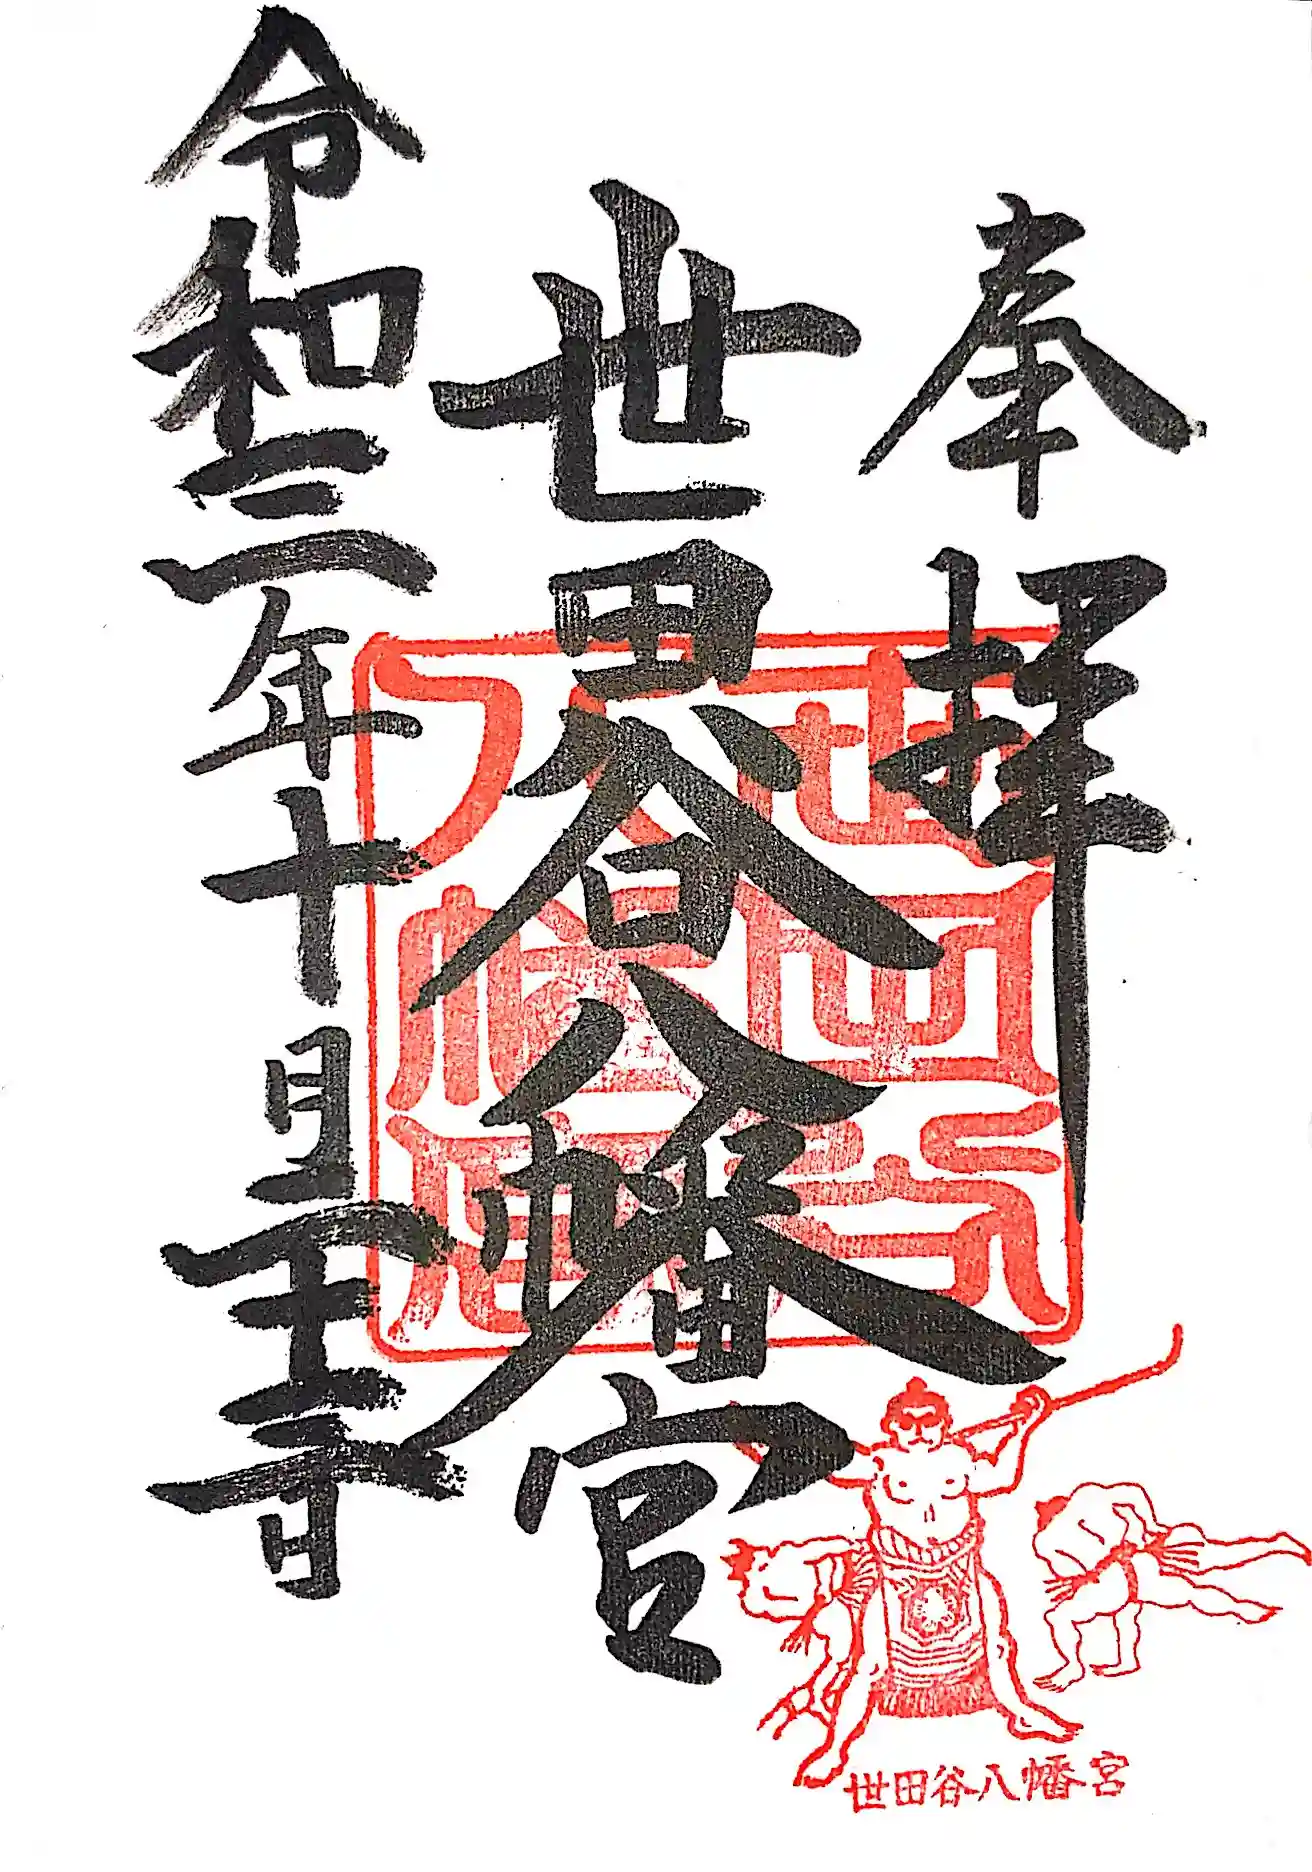 奉拝
世田谷八幡宮
令和三年十月二十三日
世田谷
八幡宮
世田谷八幡宮